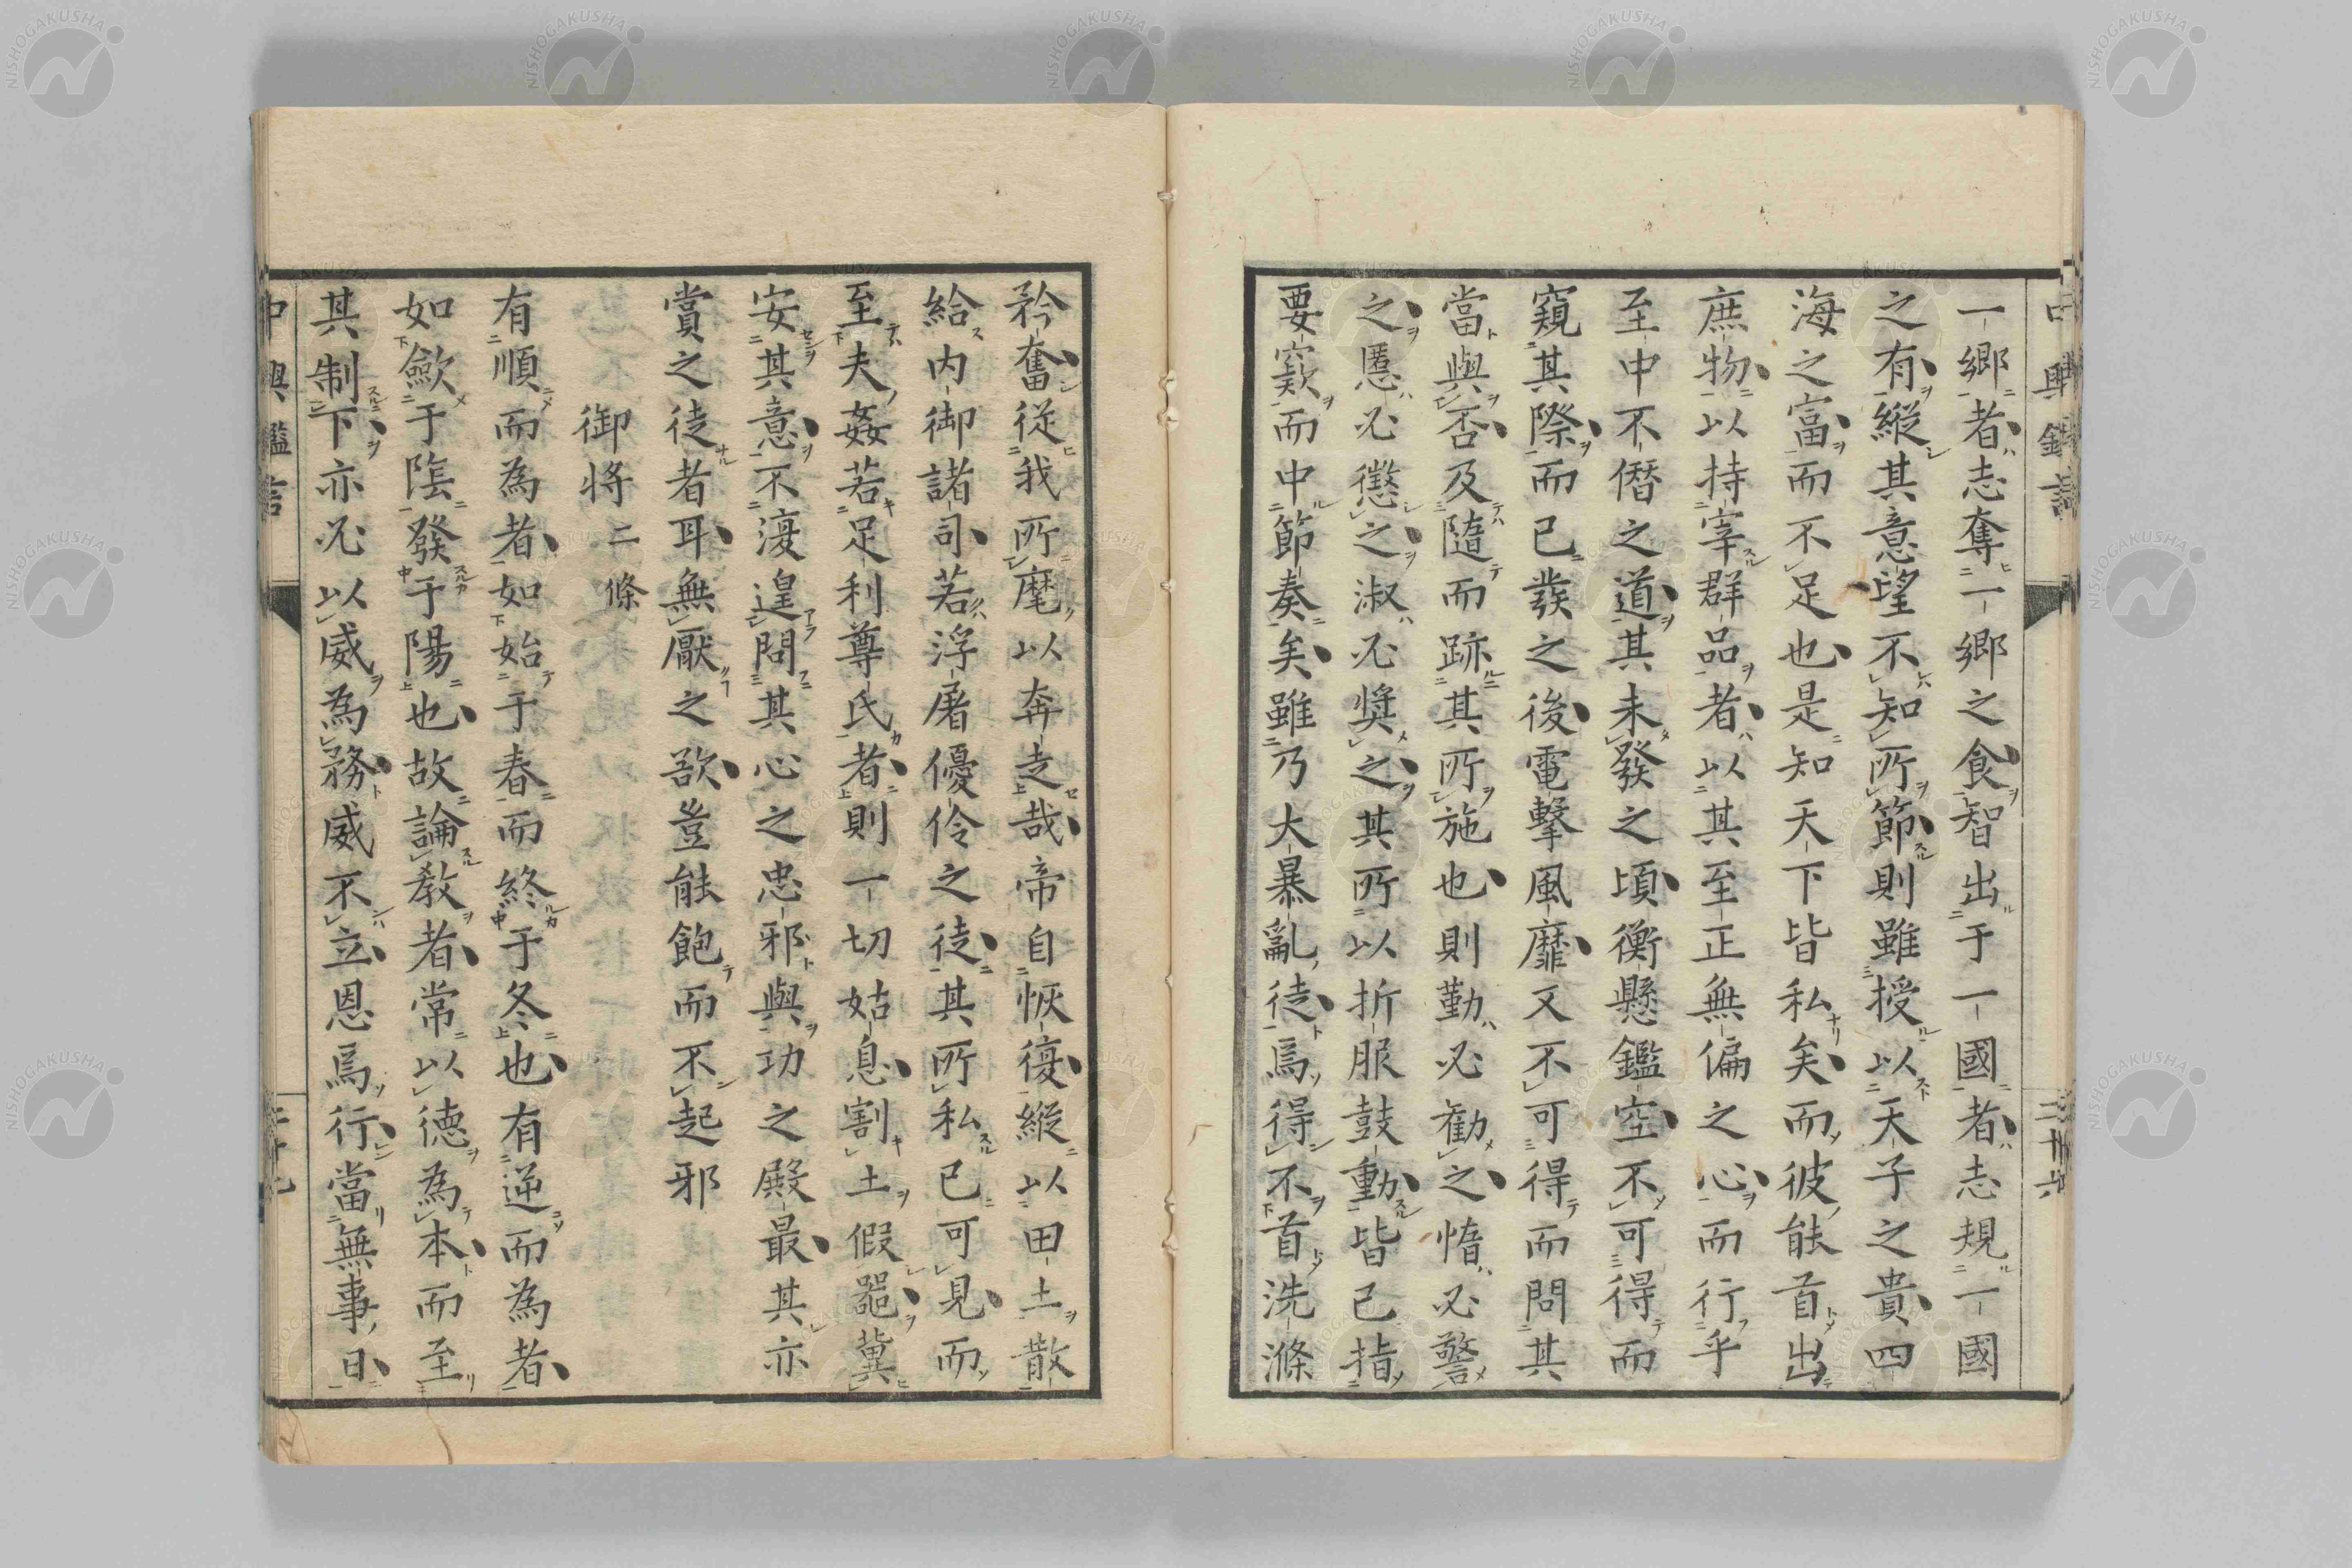 一鄉者志奪一鄉之食智出于一國者志規一國
之有縱其意望不知所節則雖授以天子之貴四
海之富而不足也是知天下皆私矣而彼能首出
庶物以持宰群品者以其至正無偏之心而行乎
至中不僭之道其未發之頃衡懸鑑空不可得而
窺其際而已發之後電擊風靡又不可得而問其
當與否及隨而跡其所施也則勤必勸之惰必警
之慝必懲之淑必獎之其所以折服鼓動皆已指
要窾而中節奏矣雖乃大暴亂徒焉得不首洗滌
矜奮從我所麾以奔走哉帝自恢復縱以田土散
給内御諸司若浮屠優伶之徒其所私已可見而
至夫姦若足利尊氏者則一切姑息割土假器冀
安其意不遑問其心之忠邪與功之殿最其亦
賞之徒者耳無厭之欲豈能飽而不起邪
御將二條
有順而為者如始于春而終于冬也有逆而為者
如歛于陰發于陽也故論教者常以德為本而至
其制下亦必以威為務威不立恩焉行當無事日
中興鑑言
三十六
NISHOGAKUSHA